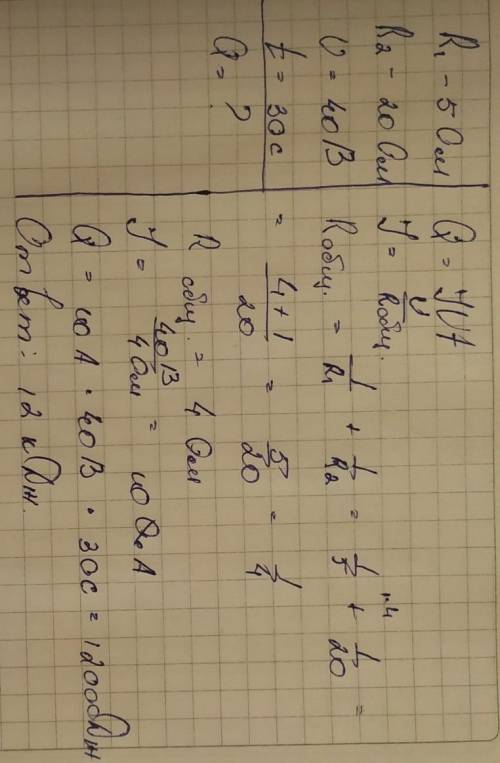 R₁ - 5 Ом
R₂ - 20 Ом
U = 40 В
t = 30 с
Q = ?
Q = IUt
I = U/Rобщ.
Rобщ. = 1/R₁ + 1/R₂ = 1/5 ·4 + 1/20 =
= 4+1/20 = 5/20 = 1/4
R общ. = 4 Ом
I = 40В/4Ом = 10 А
Q = 10А · 40В · 30с = 12000Дж
Ответ: 12 кДж.